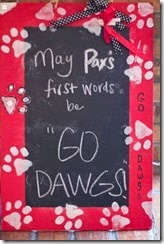 May Pax's
first words
be
"GO
DAWGS!"
GO
DAWGS!